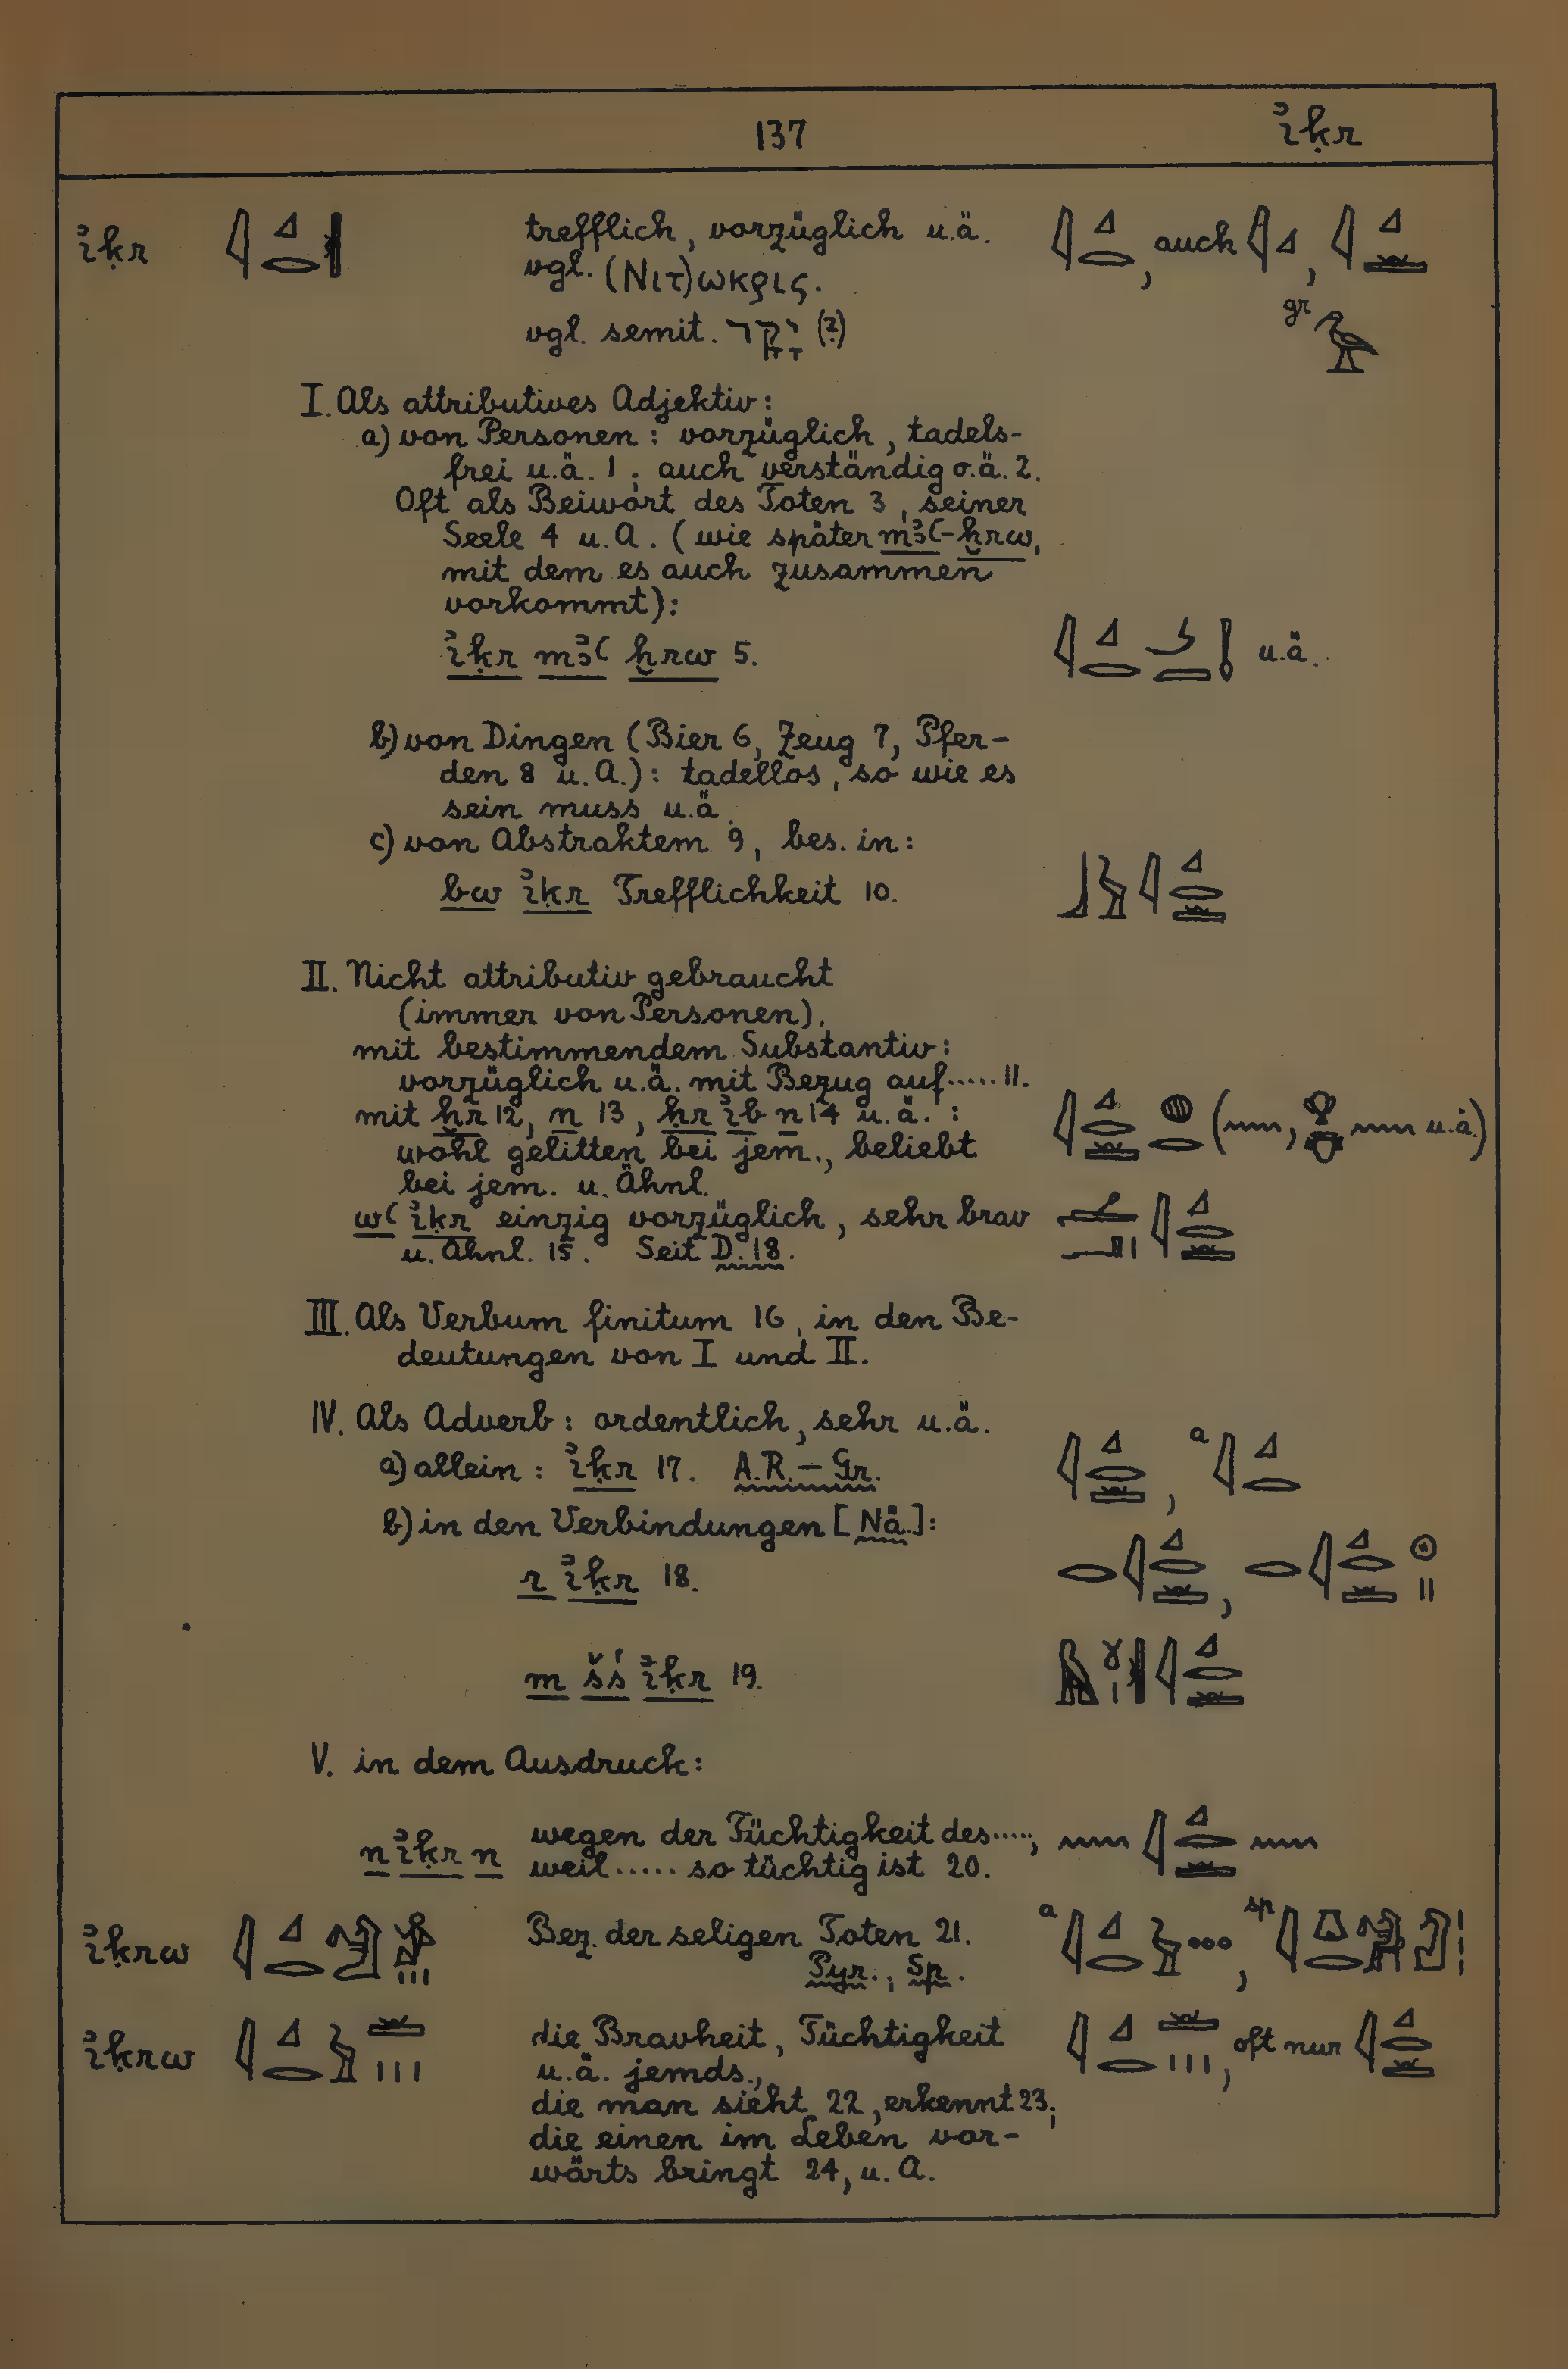 137 ꞽḳr
ꞽḳr 𓇋𓈎𓂋𓏛 trefflich, vorzüglich u.ä. 𓇋𓈎𓂋, auch 𓇋𓈎, 𓇋𓈎𓏛
vgl. (Νιτ)ωκρις.
gr
vgl. semit. יָקָר (?)
I. Als attributives Adjektiv:
a) von Personen: vorzüglich, tadels-
frei u.ä. 1; auch verständig o.ä. 2.
Oft als Beiwort des Toten 3, seiner
Seele 4 u. A. (wie später mꜣꜥ-ḫrw,
mit dem es auch zusammen
vorkommt):
ꞽḳr mꜣꜥ ḫrw 5. u.ä.
b) von Dingen (Bier 6, Zeug 7, Pfer-
den 8 u. A.): tadellos, so wie es
sein muss u.ä.
c) von Abstraktem 9, bes. in:
bw ꞽḳr Trefflichkeit 10. 𓃀𓅱𓇋𓈎𓂋𓏛
II. Nicht attributiv gebraucht
(immer von Personen).
mit bestimmendem Substantiv:
vorzüglich u.ä. mit Bezug auf ..... 11.
mit ḫr 12, n 13, ḥr ꞽb n 14 u.ä.: 𓇋𓈎𓂋𓏛𓐍𓂋 (𓈖, 𓁷𓄣𓈖 u.ä.)
wohl gelitten bei jem., beliebt
bei jem. u. Ähnl.
wꜥ ꞽḳr einzig vorzüglich, sehr brav 𓌡𓂝𓏤𓇋𓈎𓂋𓏛
u. Ähnl. 15. Seit D. 18.
III. Als Verbum finitum 16, in den Be-
deutungen von I und II.
IV. Als Adverb: ordentlich, sehr u.ä.
a) allein: ꞽḳr 17. A.R. – Gr. 𓇋𓈎𓂋𓏛, a 𓇋𓈎𓂋
b) in den Verbindungen [Nä.]:
r ꞽḳr 18. 𓂋𓇋𓈎𓂋𓏛, 𓂋𓇋𓈎𓂋𓏛𓊗𓏮
m šś ꞽḳr 19. 𓅓𓍱𓏤𓏛𓇋𓈎𓂋𓏛
V. in dem Ausdruck:
n ꞽḳr n wegen der Tüchtigkeit des ....., 𓈖𓇋𓈎𓂋𓏛𓈖
weil ..... so tüchtig ist 20.
ꞽḳrw Bez. der seligen Toten 21. a sp
Pyr., Sp.
ꞽḳrw 𓇋𓈎𓂋𓅱𓏛𓏥 die Bravheit, Tüchtigkeit 𓇋𓈎𓂋𓏛𓏥, oft nur 𓇋𓈎𓂋𓏛
u.ä. jemds.,
die man sieht 22, erkennt 23;
die einen im Leben vor-
wärts bringt 24, u. A.